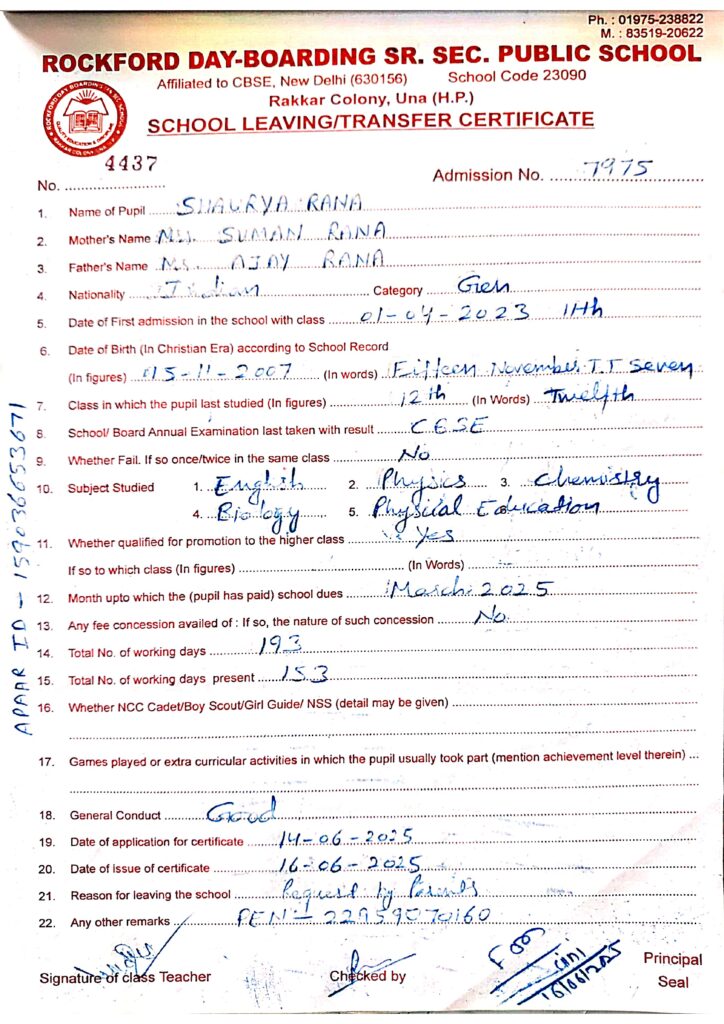 Ph. : 01975-238822
M. : 83519-20622
ROCKFORD DAY-BOARDING SR. SEC. PUBLIC SCHOOL
Affiliated to CBSE, New Delhi (630156) School Code 23090
Rakkar Colony, Una (H.P.)
SCHOOL LEAVING/TRANSFER CERTIFICATE
No. 4437 Admission No. 7975
1. Name of Pupil SHAURYA RANA
2. Mother's Name Ms. SUMAN RANA
3. Father's Name Mr. AJAY RANA
4. Nationality Indian Category Gen
5. Date of First admission in the school with class 01-04-2023 11th
6. Date of Birth (In Christian Era) according to School Record
(In figures) 15-11-2007 (In words) Fifteen November T.T Seven
7. Class in which the pupil last studied (In figures) 12th (In Words) Twelfth
8. School/ Board Annual Examination last taken with result CBSE
9. Whether Fail. If so once/twice in the same class No
10. Subject Studied 1. English 2. Physics 3. Chemistry
4. Biology 5. Physical Education
11. Whether qualified for promotion to the higher class Yes
If so to which class (In figures) (In Words)
12. Month upto which the (pupil has paid) school dues March 2025
13. Any fee concession availed of : If so, the nature of such concession No
14. Total No. of working days 193
15. Total No. of working days present 153
16. Whether NCC Cadet/Boy Scout/Girl Guide/ NSS (detail may be given)
17. Games played or extra curricular activities in which the pupil usually took part (mention achievement level therein)
18. General Conduct Good
19. Date of application for certificate 14-06-2025
20. Date of issue of certificate 16-06-2025
21. Reason for leaving the school Request by Parents
22. Any other remarks PEN :- 22959070160
Signature of class Teacher Checked by Principal
Seal
16/06/2025
APAAR ID - 159036653671